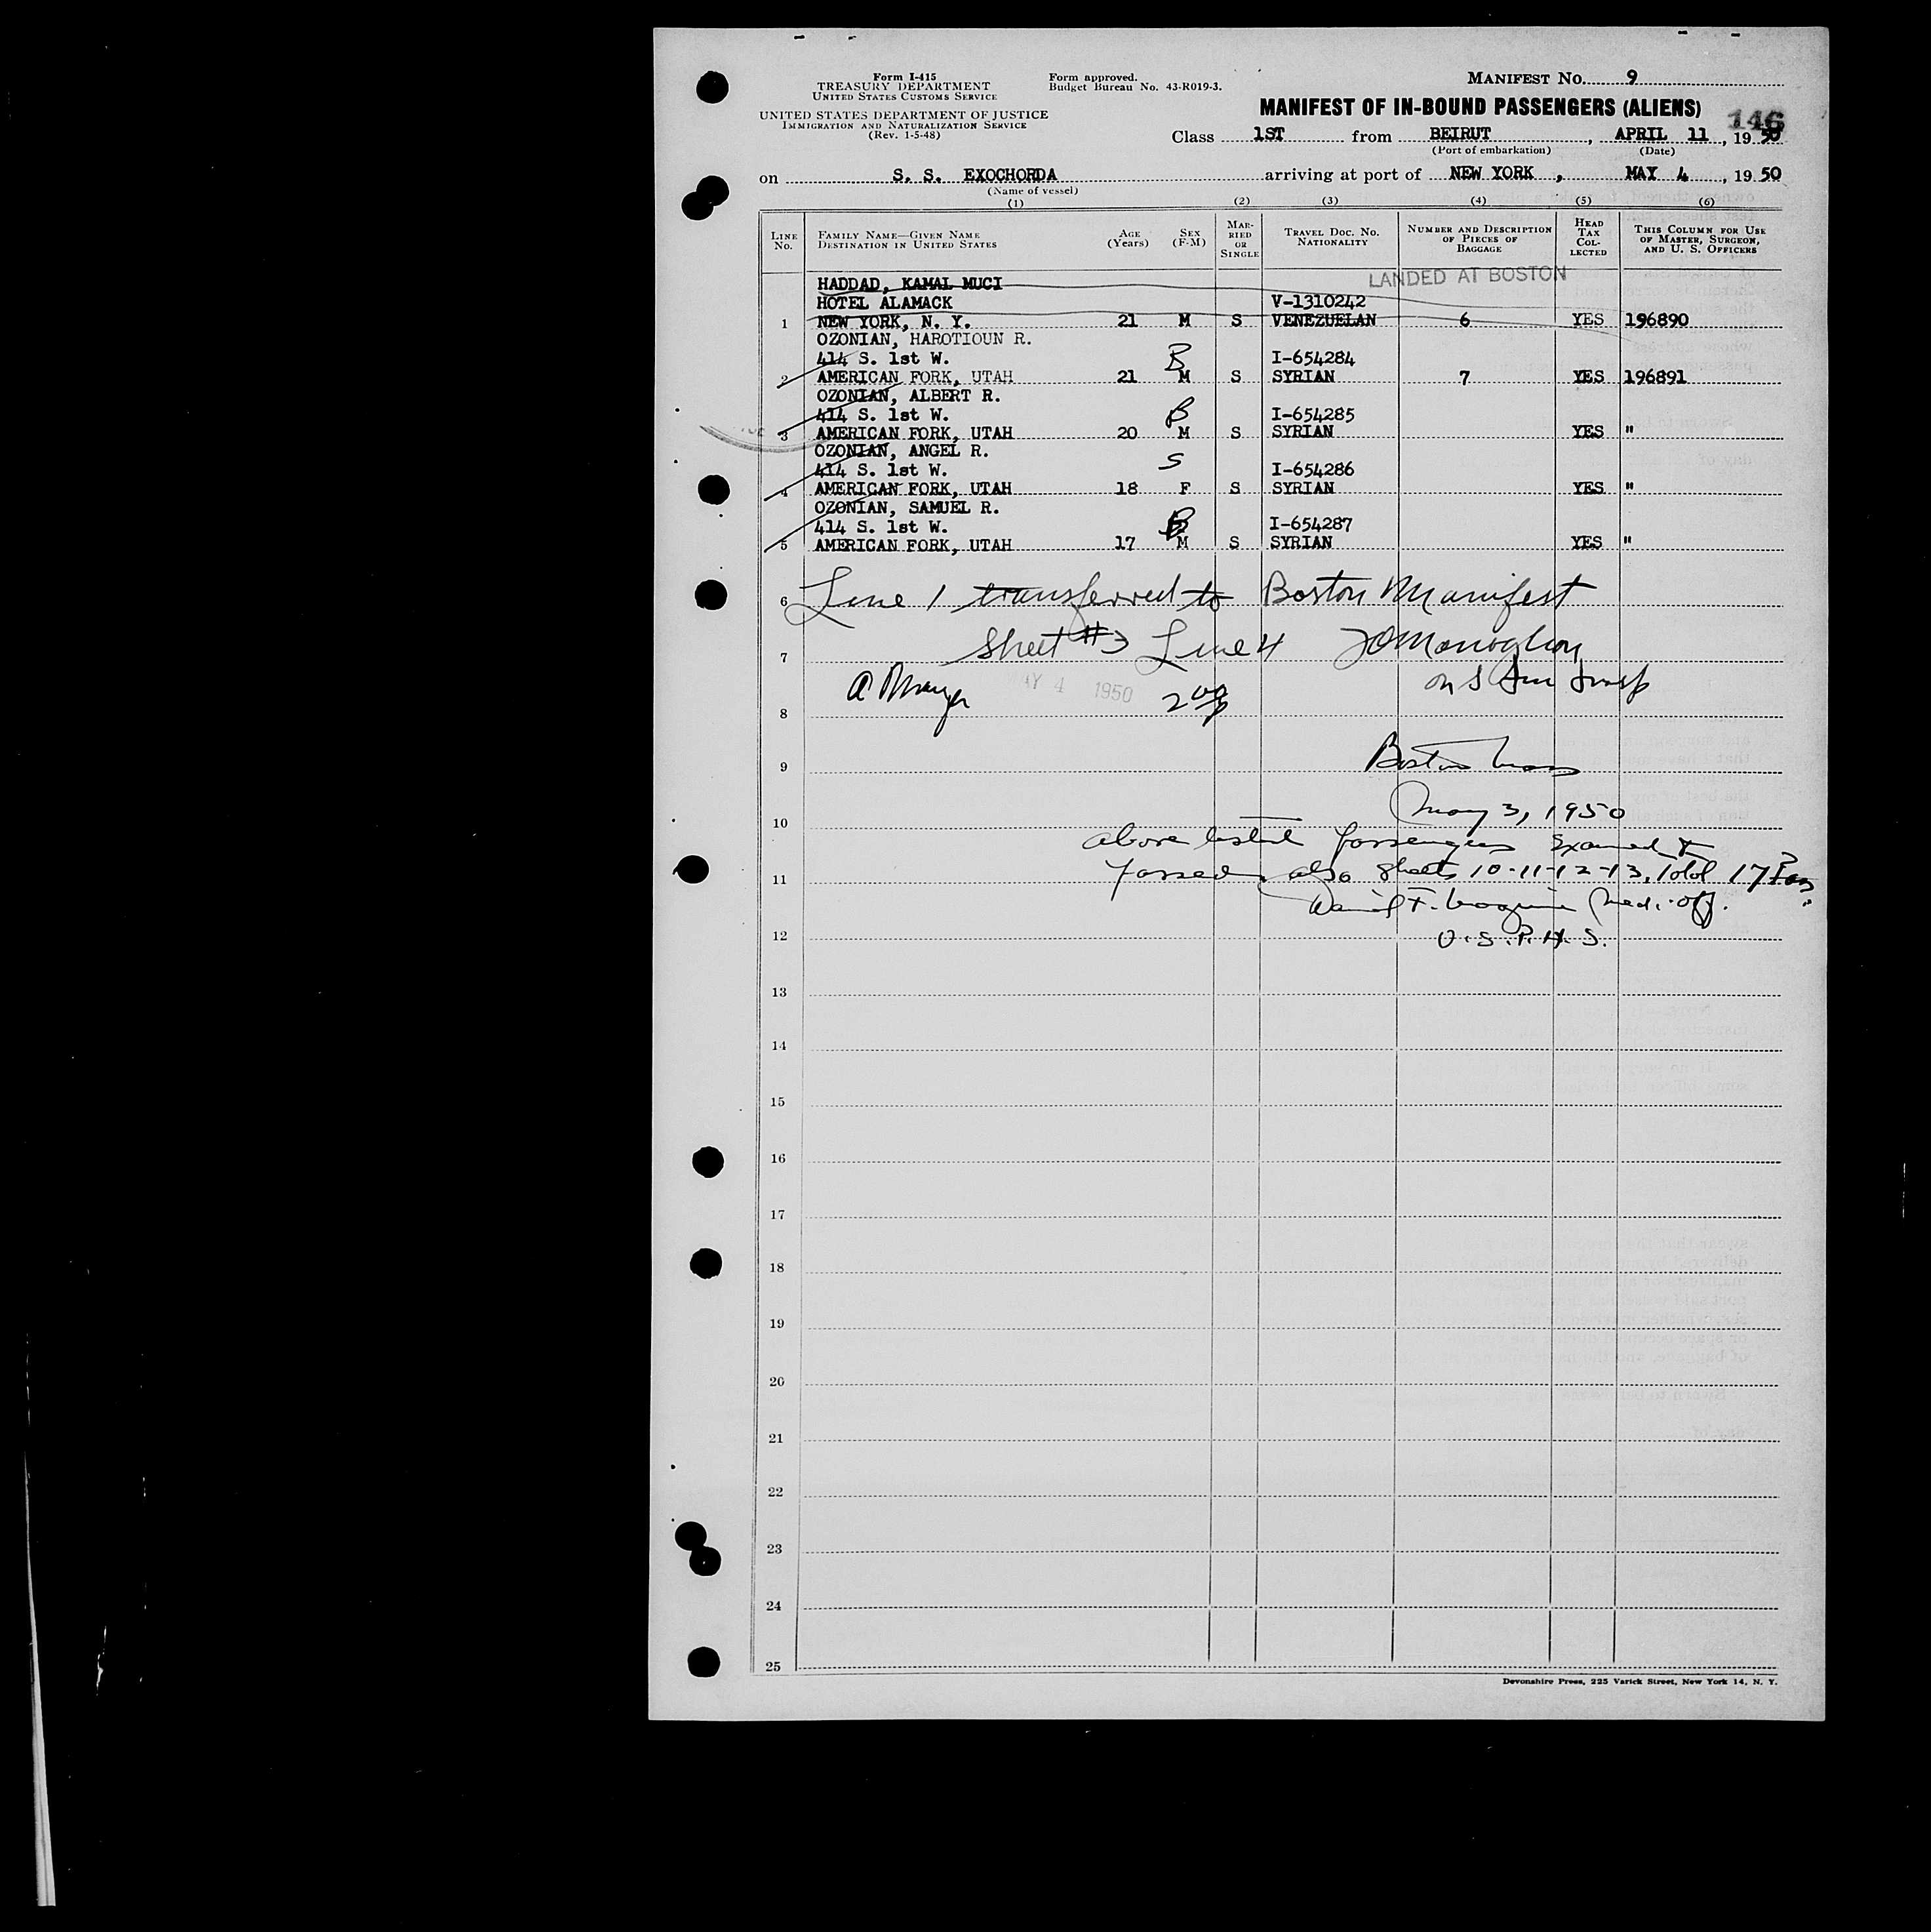 Form I-415
TREASURY DEPARTMENT
UNITED STATES CUSTOMS SERVICE
UNITED STATES DEPARTMENT OF JUSTICE
IMMIGRATION AND NATURALIZATION SERVICE
(Rev. 1-5-48)
Form approved.
Budget Bureau No. 43-R019-3.
MANIFEST NO. 9
MANIFEST OF IN-BOUND PASSENGERS (ALIENS)
146
Class 1ST from BEIRUT, APRIL 11, 1950
(Port of embarkation) (Date)
on S. S. EXOCHORDA arriving at port of NEW YORK, MAY 4, 1950
(Name of vessel)
(1) (2) (3) (4) (5) (6)
LINE NO. FAMILY NAME—GIVEN NAME DESTINATION IN UNITED STATES AGE (Years) SEX (F-M) MARRIED OR SINGLE TRAVEL DOC. NO. NATIONALITY NUMBER AND DESCRIPTION OF PIECES OF BAGGAGE HEAD TAX COLLECTED THIS COLUMN FOR USE OF MASTER, SURGEON, AND U. S. OFFICERS
LANDED AT BOSTON
HADDAD, KAMAL MUCI
HOTEL ALAMACK V-1310242
1 NEW YORK, N. Y. 21 M S VENEZUELAN 6 YES 196890
OZONIAN, HAROTIOUN R.
414 S. 1st W. B I-654284
2 AMERICAN FORK, UTAH 21 M S SYRIAN 7 YES 196891
OZONIAN, ALBERT R.
414 S. 1st W. B I-654285
3 AMERICAN FORK, UTAH 20 M S SYRIAN YES "
OZONIAN, ANGEL R.
414 S. 1st W. S I-654286
4 AMERICAN FORK, UTAH 18 F S SYRIAN YES "
OZONIAN, SAMUEL R.
414 S. 1st W. B I-654287
5 AMERICAN FORK, UTAH 17 M S SYRIAN YES "
6 Line 1 transferred to Boston Manifest
7 Sheet #3 Line 4
MAY 4 1950
8
9 Boston Mass
10 May 3, 1950
above listed passengers Examined &
11 passed, also sheets 10-11-12-13, Total 17 Pass.
Daniel F. Medi. off.
12 U.S.P.H.S.
13
14
15
16
17
18
19
20
21
22
23
24
25
Devonshire Press, 225 Varick Street, New York 14, N. Y.